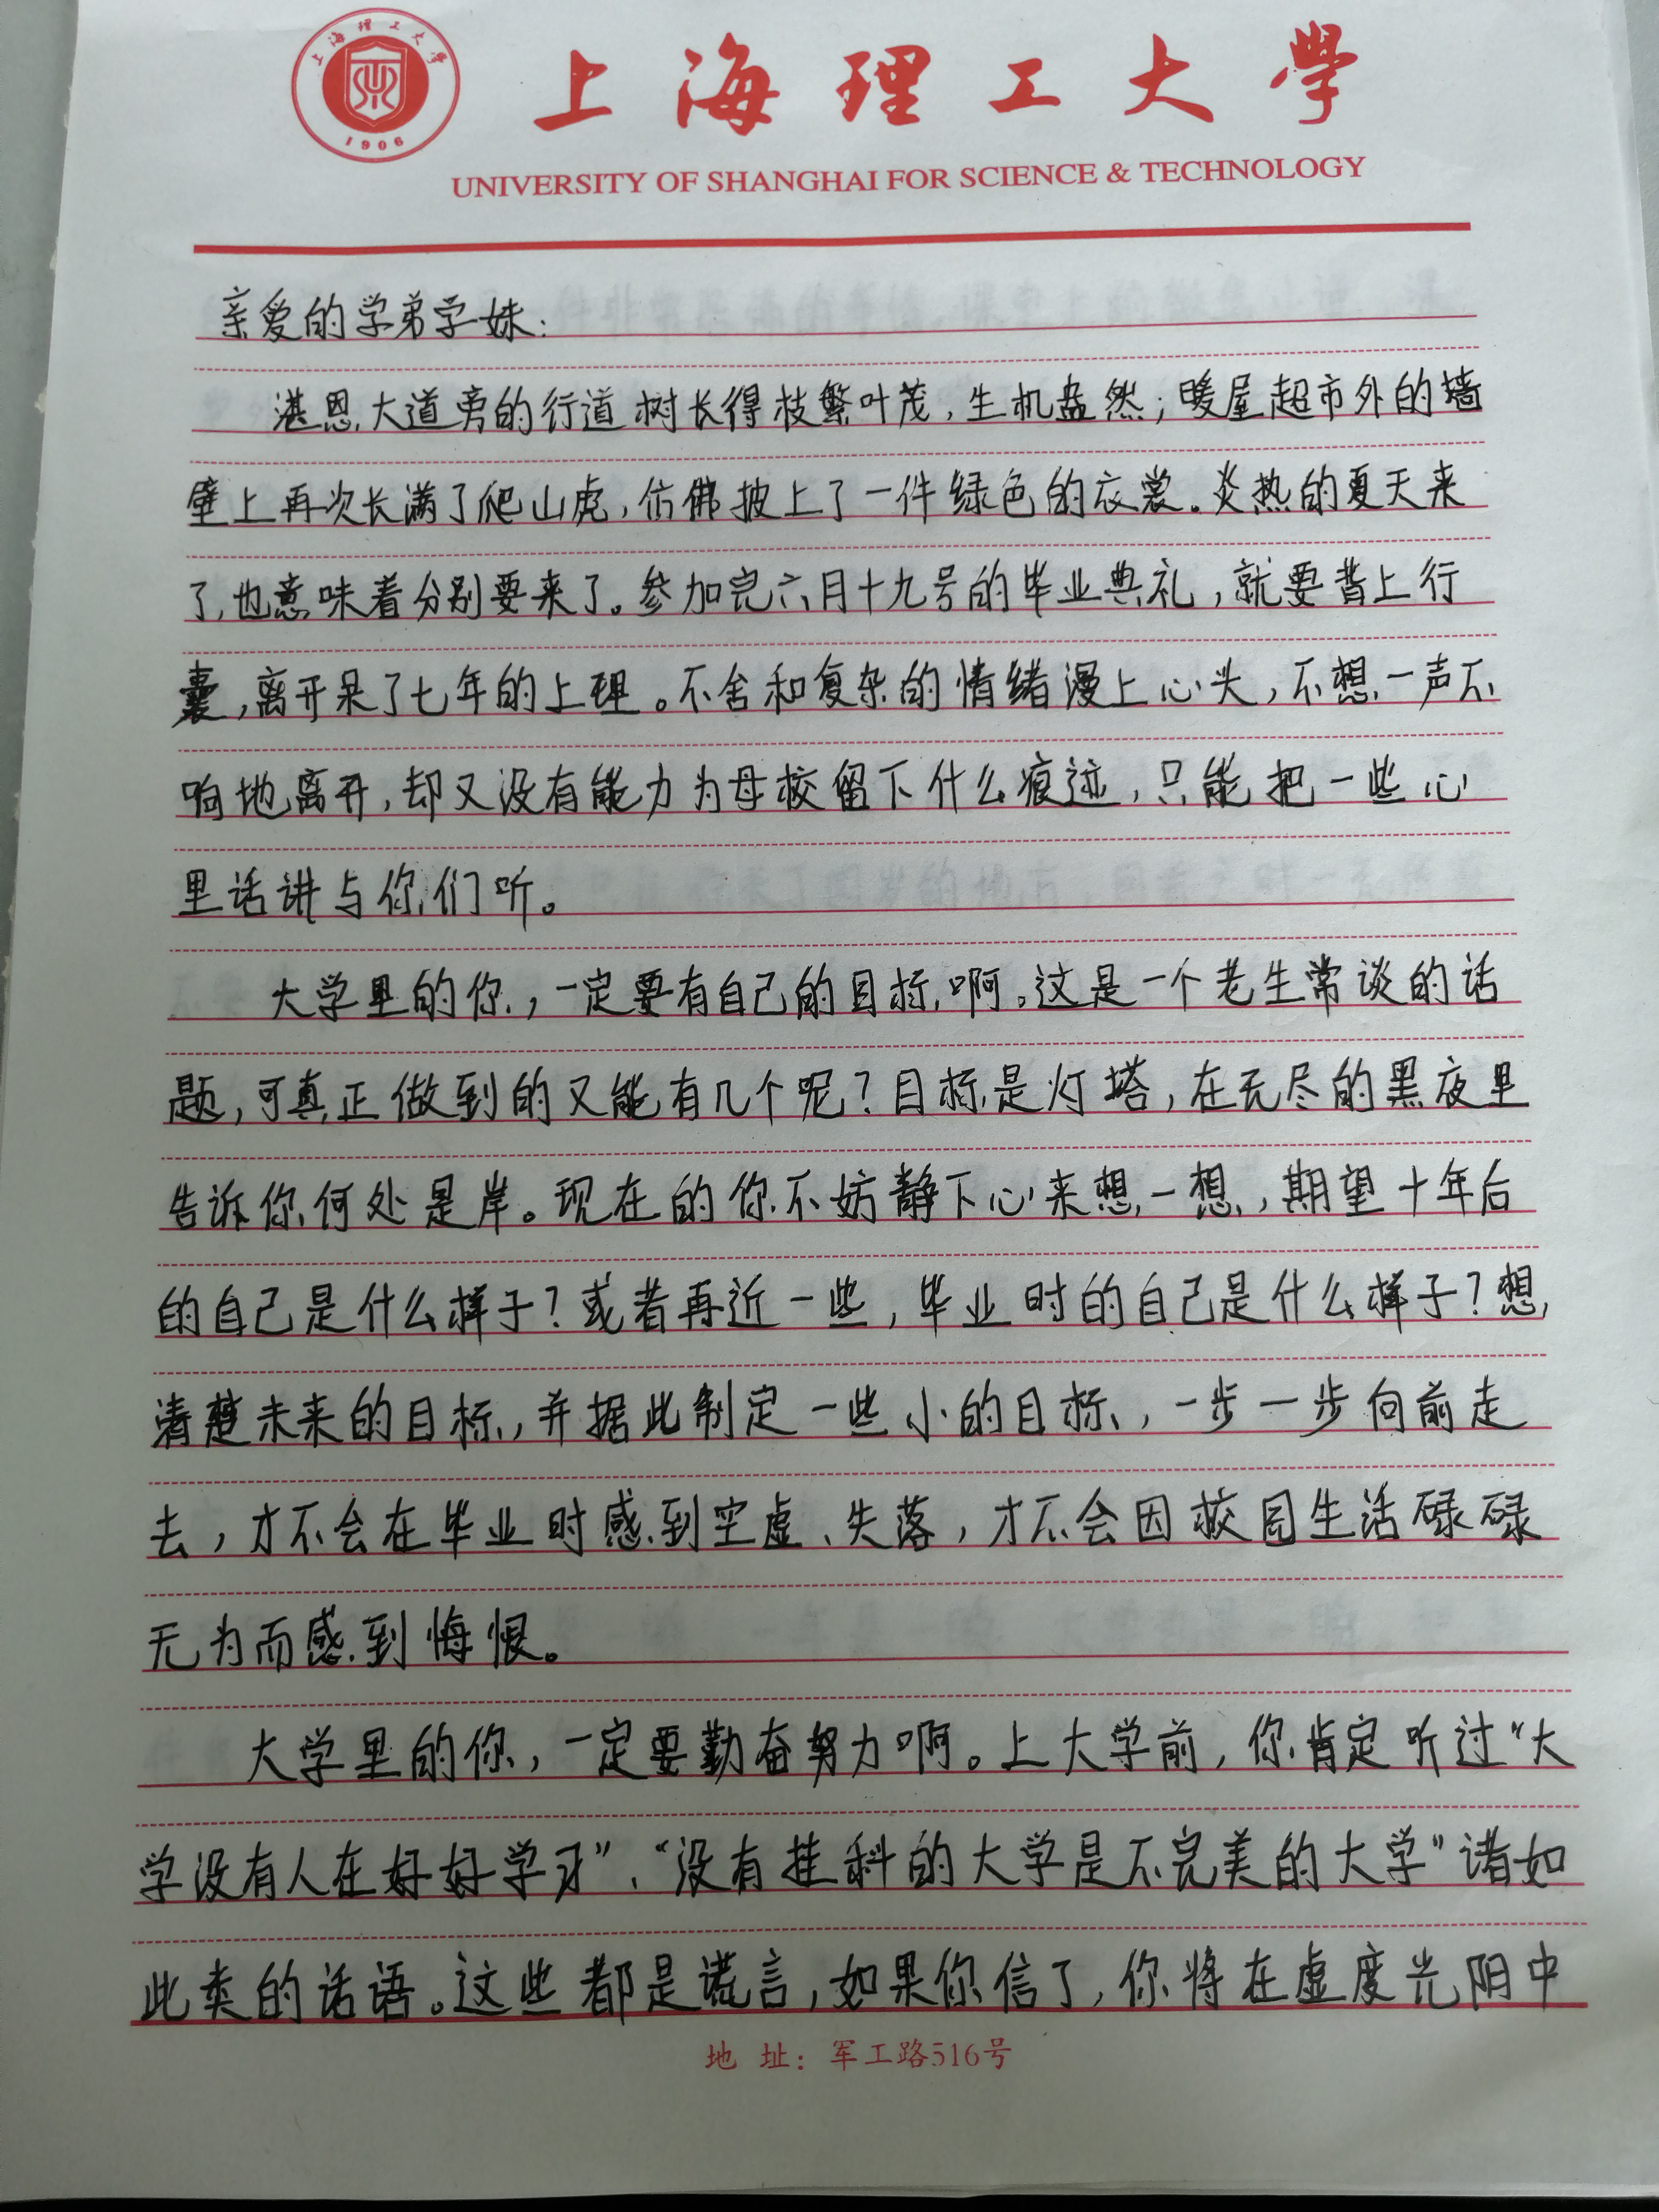 上海理工大學
1906
上海理工大學
UNIVERSITY OF SHANGHAI FOR SCIENCE & TECHNOLOGY
亲爱的学弟学妹:
湛恩大道旁的行道树长得枝繁叶茂,生机盎然;暖屋超市外的墙
壁上再次长满了爬山虎,仿佛披上了一件绿色的衣裳。炎热的夏天来
了,也意味着分别要来了。参加完六月十九号的毕业典礼,就要背上行
囊,离开呆了七年的上理。不舍和复杂的情绪漫上心头,不想一声不
响地离开,却又没有能力为母校留下什么痕迹,只能把一些心
里话讲与你们听。
大学里的你,一定要有自己的目标啊。这是一个老生常谈的话
题,可真正做到的又能有几个呢?目标是灯塔,在无尽的黑夜里
告诉你何处是岸。现在的你不妨静下心来想一想,期望十年后
的自己是什么样子?或者再近一些,毕业时的自己是什么样子?想
清楚未来的目标,并据此制定一些小的目标,一步一步向前走
去,才不会在毕业时感到空虚、失落,才不会因校园生活碌碌
无为而感到悔恨。
大学里的你,一定要勤奋努力啊。上大学前,你肯定听过“大
学没有人在好好学习”、“没有挂科的大学是不完美的大学”诸如
此类的话语。这些都是谎言,如果你信了,你将在虚度光阴中
地 址:军工路516号